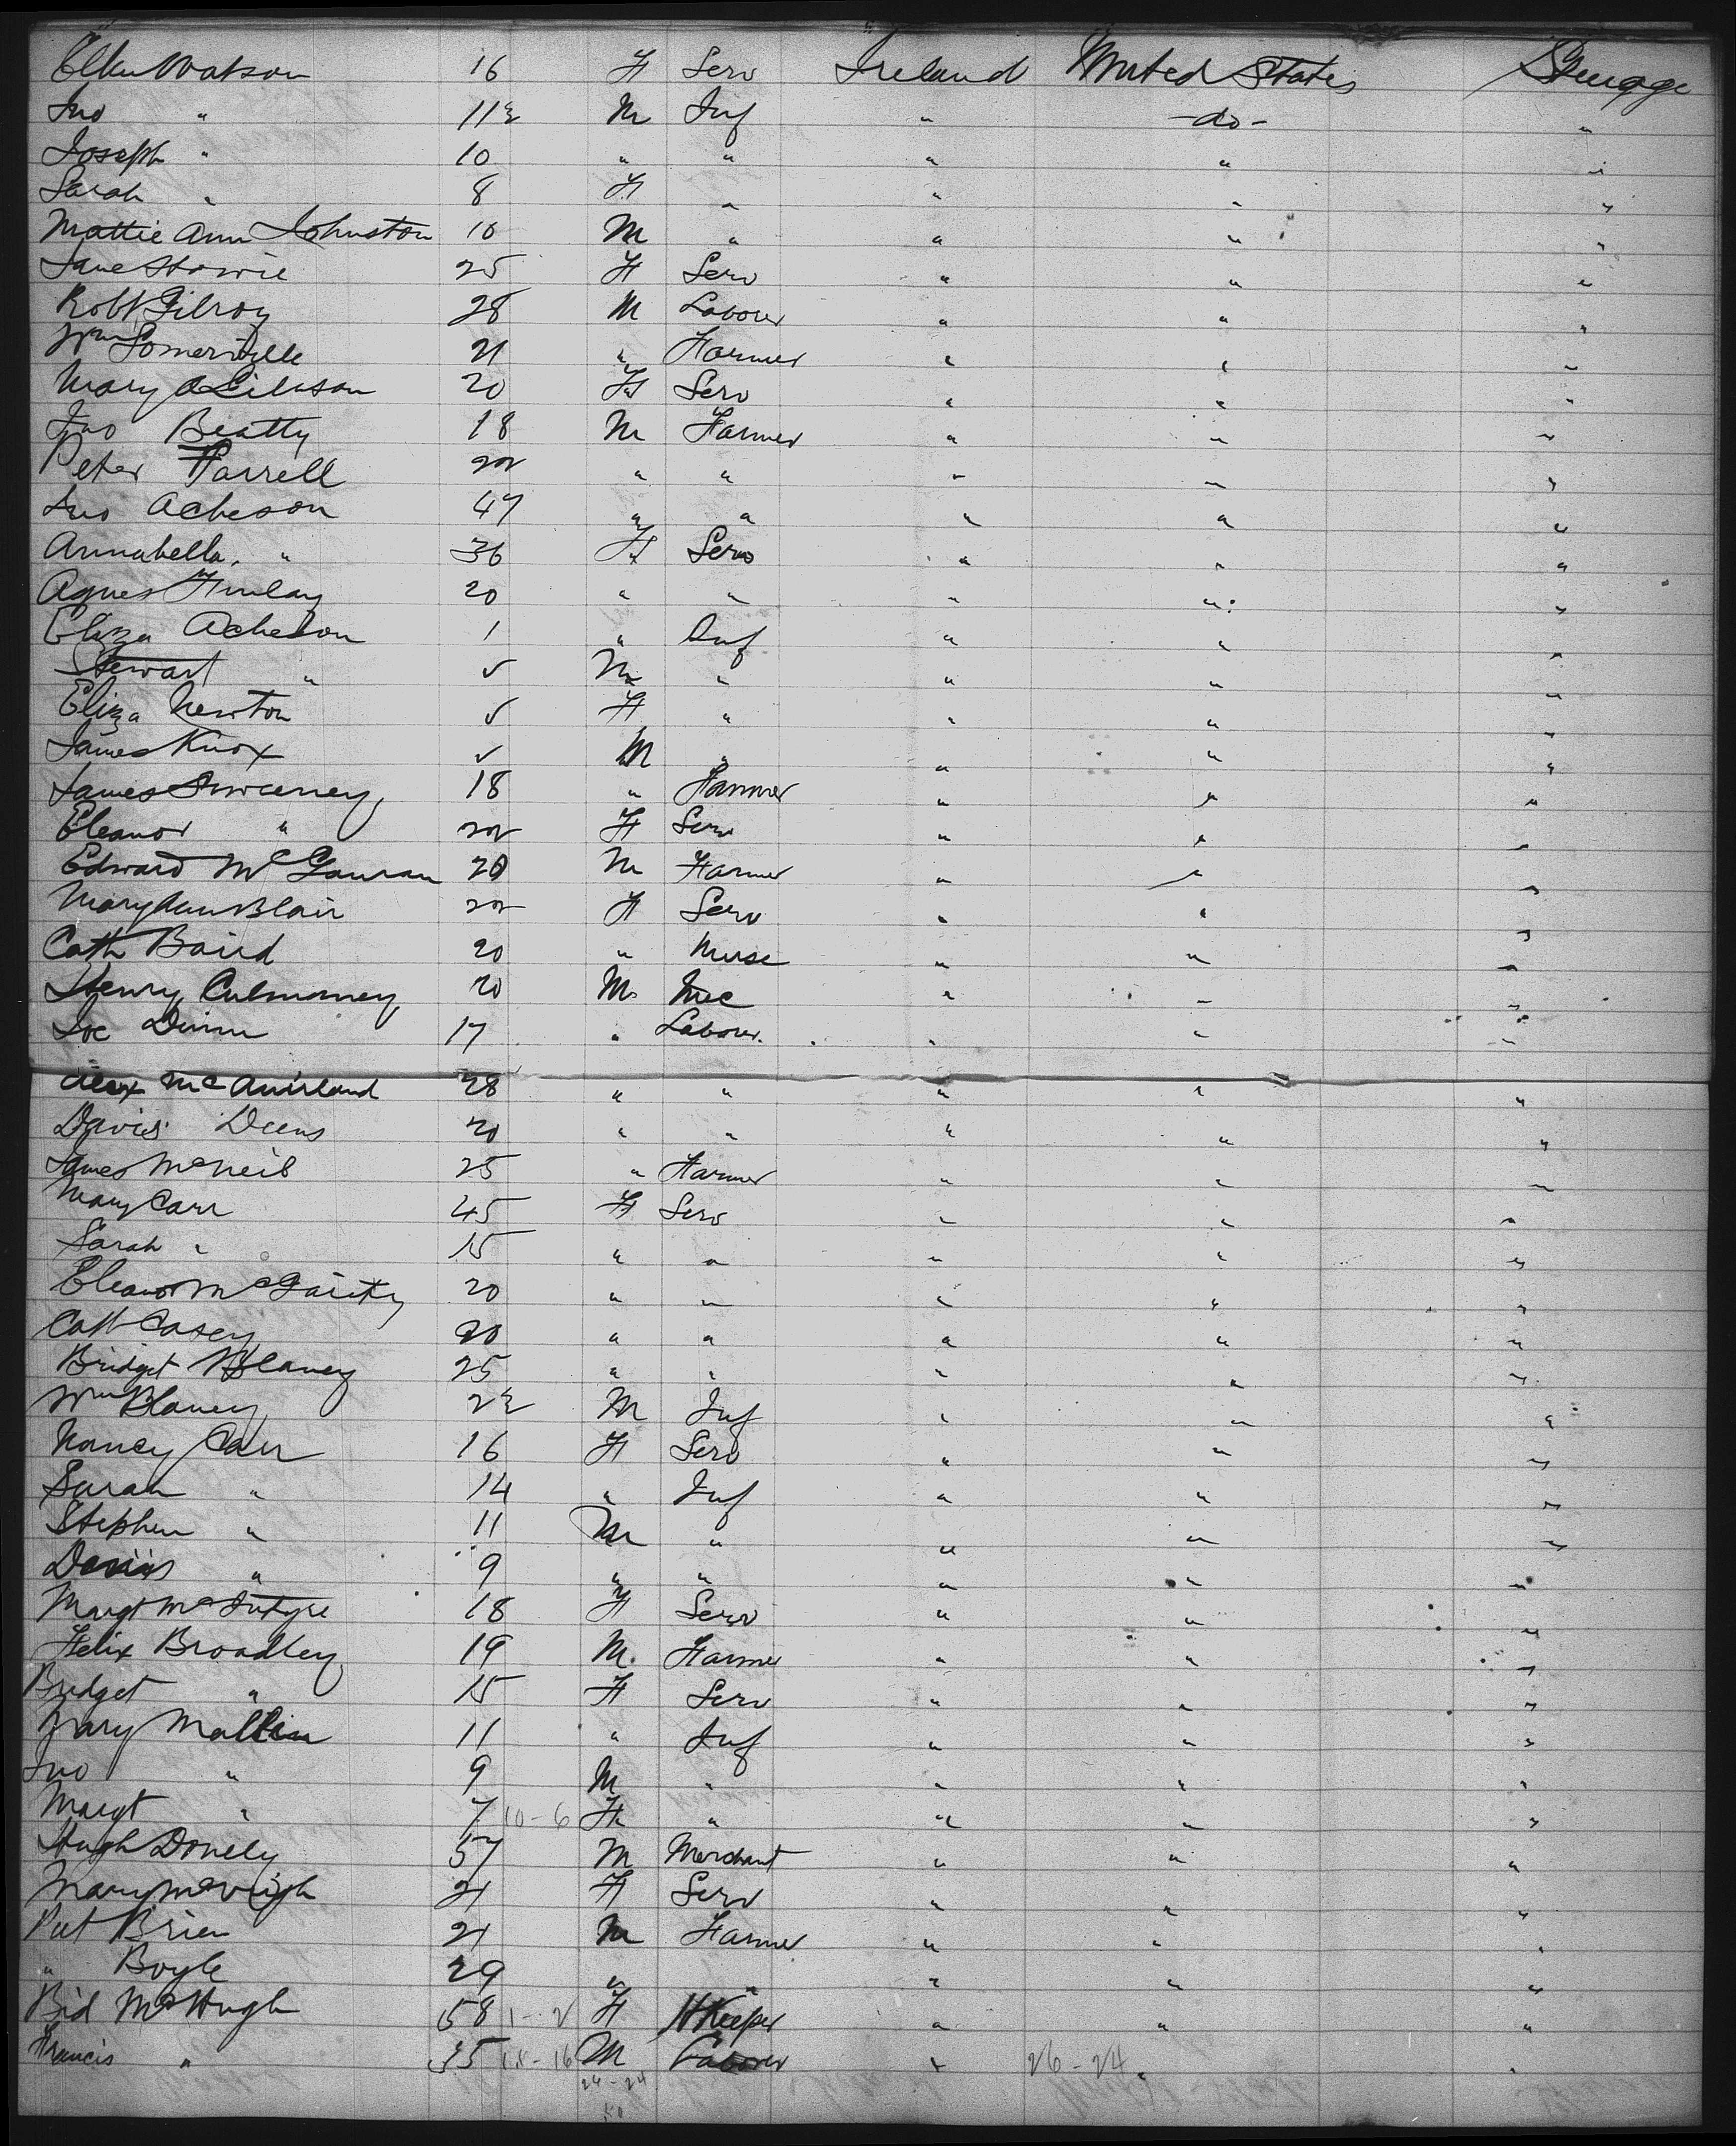 Ellen Watson 16 F Serv Ireland United States Steerage
Jno " 11½ M Inf " -do- "
Joseph " 10 " " " " "
Sarah " 8 F " " " "
Mattie Ann Johnston 10 M " " " "
Jane Howie 25 F Serv " " "
Robt Gilroy 28 M Laborer " " "
Wm Somerville 21 " Farmer " " "
Mary 20 F Serv " " "
Jno Beatty 18 M Farmer " " "
Peter Farrell 22 " " " " "
Jno Acheson 47 " " " " "
Annabella " 36 F Serv " " "
Agnes Finlay 20 " " " " "
Eliza Acheson 1 " Inf " " "
Stewart " ✓ M " " " "
Eliza Newton ✓ F " " " "
James Knox ✓ M " " " "
James Sweeney 18 " Farmer " " "
Eleanor " 22 F Serv " " "
Edward McGauran 20 M Farmer " " "
Mary Ann Blair 22 F Serv " " "
Cath Baird 20 " Nurse " " "
Henry 20 M Mec " " "
Joe 17 " Laborer " " "
Alex McAusland 28 " " " " "
Davis Deens 20 " " " " "
James McNeil 25 " Farmer " " "
Mary Carr 45 F Serv " " "
Sarah " 15 " " " " "
Eleanor McGarity 20 " " " " "
Cath Casey 20 " " " " "
Bridget Blaney 25 " " " " "
Wm Blaney 2½ M Inf " " "
Nancy Carr 16 F Serv " " "
Sarah " 14 " Inf " " "
Stephen " 11 M " " " "
" 9 " " " " "
Margt McIntyre 18 F Serv " " "
Felix Broadley 19 M Farmer " " "
Bridget " 15 F Serv " " "
Mary Mallin 11 " Inf " " "
Jno " 9 M " " " "
Margt " 7 10-6 F " " " "
Hugh Donely 57 M Merchant " " "
Mary McVeigh 21 F Serv " " "
Pat Brien 21 M Farmer " " "
" Boyle 29 " " " " "
Bid McHugh 58 1-2 F HKeeper " " "
Francis " 35 M Laborer " 26-24 " "
24-24
50